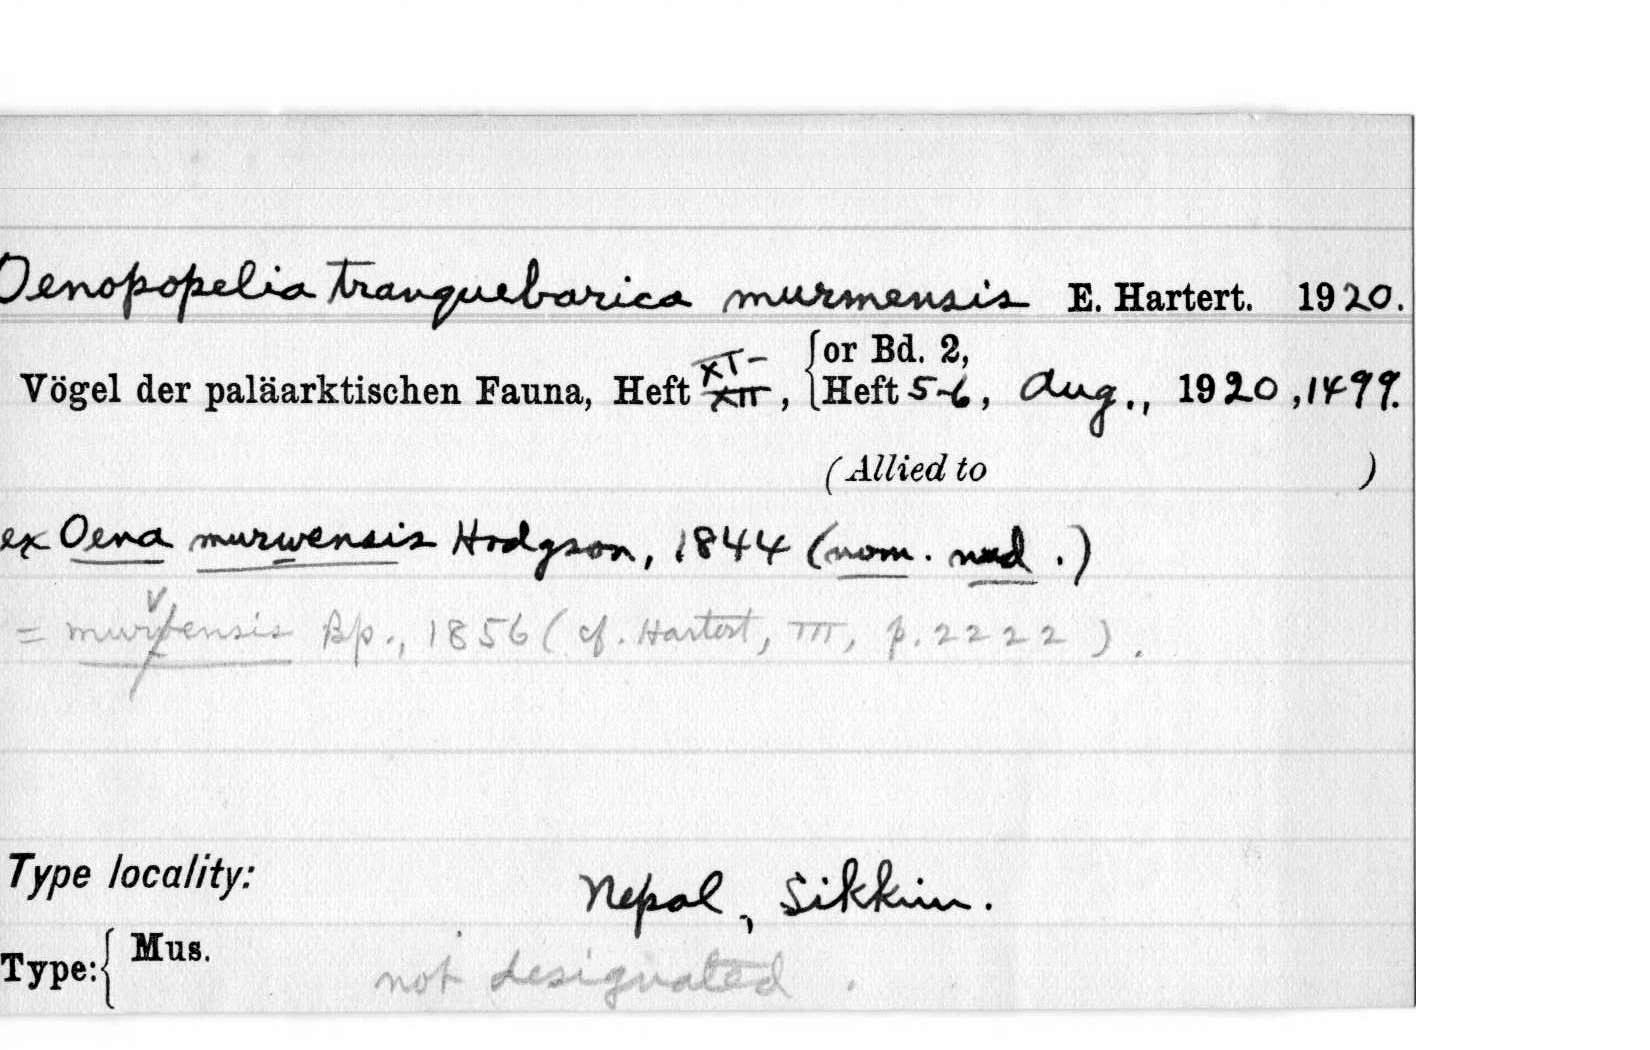 Oenopopelia tranquebarica murmensis E. Hartert. 1920.
Vögel der paläarktischen Fauna, Heft XI-XII, {or Bd. 2, Heft 5-6, Aug., 1920, 1499.
(Allied to )
ex Oena murwensis Hodgson, 1844 (nom. nud.)
= murvensis Bp., 1856 (cf. Hartert, III, p. 2222).
Type locality: Nepal, Sikkim.
Type: { Mus. not designated.